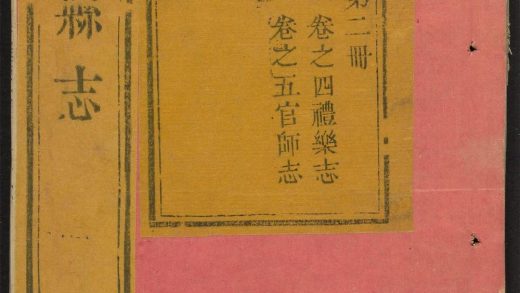 第二冊
卷之四禮樂志
卷之五官師志
縣志